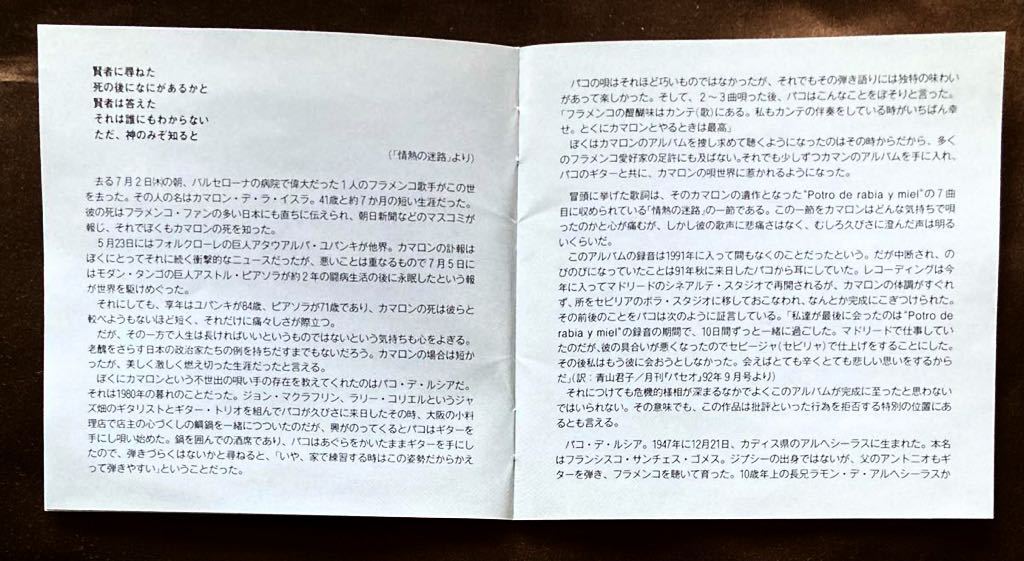 賢者に尋ねた
死の後になにがあるかと
賢者は答えた
それは誰にもわからない
ただ、神のみぞ知ると
(「情熱の迷路」より)
去る7月2日㈭の朝、バルセローナの病院で偉大だった1人のフラメンコ歌手がこの世
を去った。その人の名はカマロン・デ・ラ・イスラ。41歳と約7か月の短い生涯だった。
彼の死はフラメンコ・ファンの多い日本にも直ちに伝えられ、朝日新聞などのマスコミが
報じ、それでぼくもカマロンの死を知った。
5月23日にはフォルクローレの巨人アタウアルパ・ユパンキが他界。カマロンの訃報は
ぼくにとってそれに続く衝撃的なニュースだったが、悪いことは重なるもので7月5日に
はモダン・タンゴの巨人アストル・ピアソラが約2年の闘病生活の後に永眠したという報
が世界を駆けめぐった。
それにしても、享年はユパンキが84歳、ピアソラが71歳であり、カマロンの死は彼らと
較べようもないほど短く、それだけに痛々しさが際立つ。
だが、その一方で人生は長ければいいというものではないという気持ちも心をよぎる。
老醜をさらす日本の政治家たちの例を持ちだすまでもないだろう。カマロンの場合は短か
ったが、美しく激しく燃え切った生涯だったと言える。
ぼくにカマロンという不世出の唄い手の存在を教えてくれたのはパコ・デ・ルシアだ。
それは1980年の暮れのことだった。ジョン・マクラフリン、ラリー・コリエルというジャ
ズ畑のギタリストとギター・トリオを組んでパコが久びさに来日したその時、大阪の小料
理店で店主の心づくしの鯛鍋を一緒につついたのだが、興がのってくるとパコはギターを
手にし唄い始めた。鍋を囲んでの酒席であり、パコはあぐらをかいたままギターを手にし
たので、弾きづらくはないかと尋ねると、「いや、家で練習する時はこの姿勢だからかえ
って弾きやすい」ということだった。
パコの唄はそれほど巧いものではなかったが、それでもその弾き語りには独特の味わい
があって楽しかった。そして、2〜3曲唄った後、パコはこんなことをぼそりと言った。
「フラメンコの醍醐味はカンテ(歌)にある。私もカンテの伴奏をしている時がいちばん幸
せ。とくにカマロンとやるときは最高」
ぼくはカマロンのアルバムを捜し求めて聴くようになったのはその時からだから、多く
のフラメンコ愛好家の足許にも及ばない。それでも少しずつカマンのアルバムを手に入れ、
パコのギターと共に、カマロンの唄世界に惹かれるようになった。
冒頭に挙げた歌詞は、そのカマロンの遺作となった"Potro de rabia y miel"の7曲
目に収められている「情熱の迷路」の一節である。この一節をカマロンはどんな気持ちで唄
ったのかと心が痛むが、しかし彼の歌声に悲痛さはなく、むしろ久びさに澄んだ声は明る
いくらいだ。
このアルバムの録音は1991年に入って間もなくのことだったという。だが中断され、の
びのびになっていたことは91年秋に来日したパコから耳にしていた。レコーディングは今
年に入ってマドリードのシネアルテ・スタジオで再開されるが、カマロンの体調がすぐれ
ず、所をセビリアのボラ・スタジオに移しておこなわれ、なんとか完成にこぎつけられた。
その前後のことをパコは次のように証言している。「私達が最後に会ったのは"Potro de
rabia y miel"の録音の期間で、10日間ずっと一緒に過ごした。マドリードで仕事してい
たのだが、彼の具合いが悪くなったのでセビージャ(セビリャ)で仕上げをすることにした。
その後私はもう彼に会おうとしなかった。会えばとても辛くとても悲しい思いをするから
だ」(訳：青山君子／月刊「パセオ」92年9月号より)
それにつけても危機的様相が深まるなかでよくこのアルバムが完成に至ったと思わない
ではいられない。その意味でも、この作品は批評といった行為を拒否する特別の位置にあ
るとも言える。
パコ・デ・ルシア。1947年に12月21日、カディス県のアルヘシーラスに生まれた。本名
はフランシスコ・サンチェス・ゴメス。ジプシーの出身ではないが、父のアントニオもギ
ターを弾き、フラメンコを聴いて育った。10歳年上の長兄ラモン・デ・アルヘシーラスか